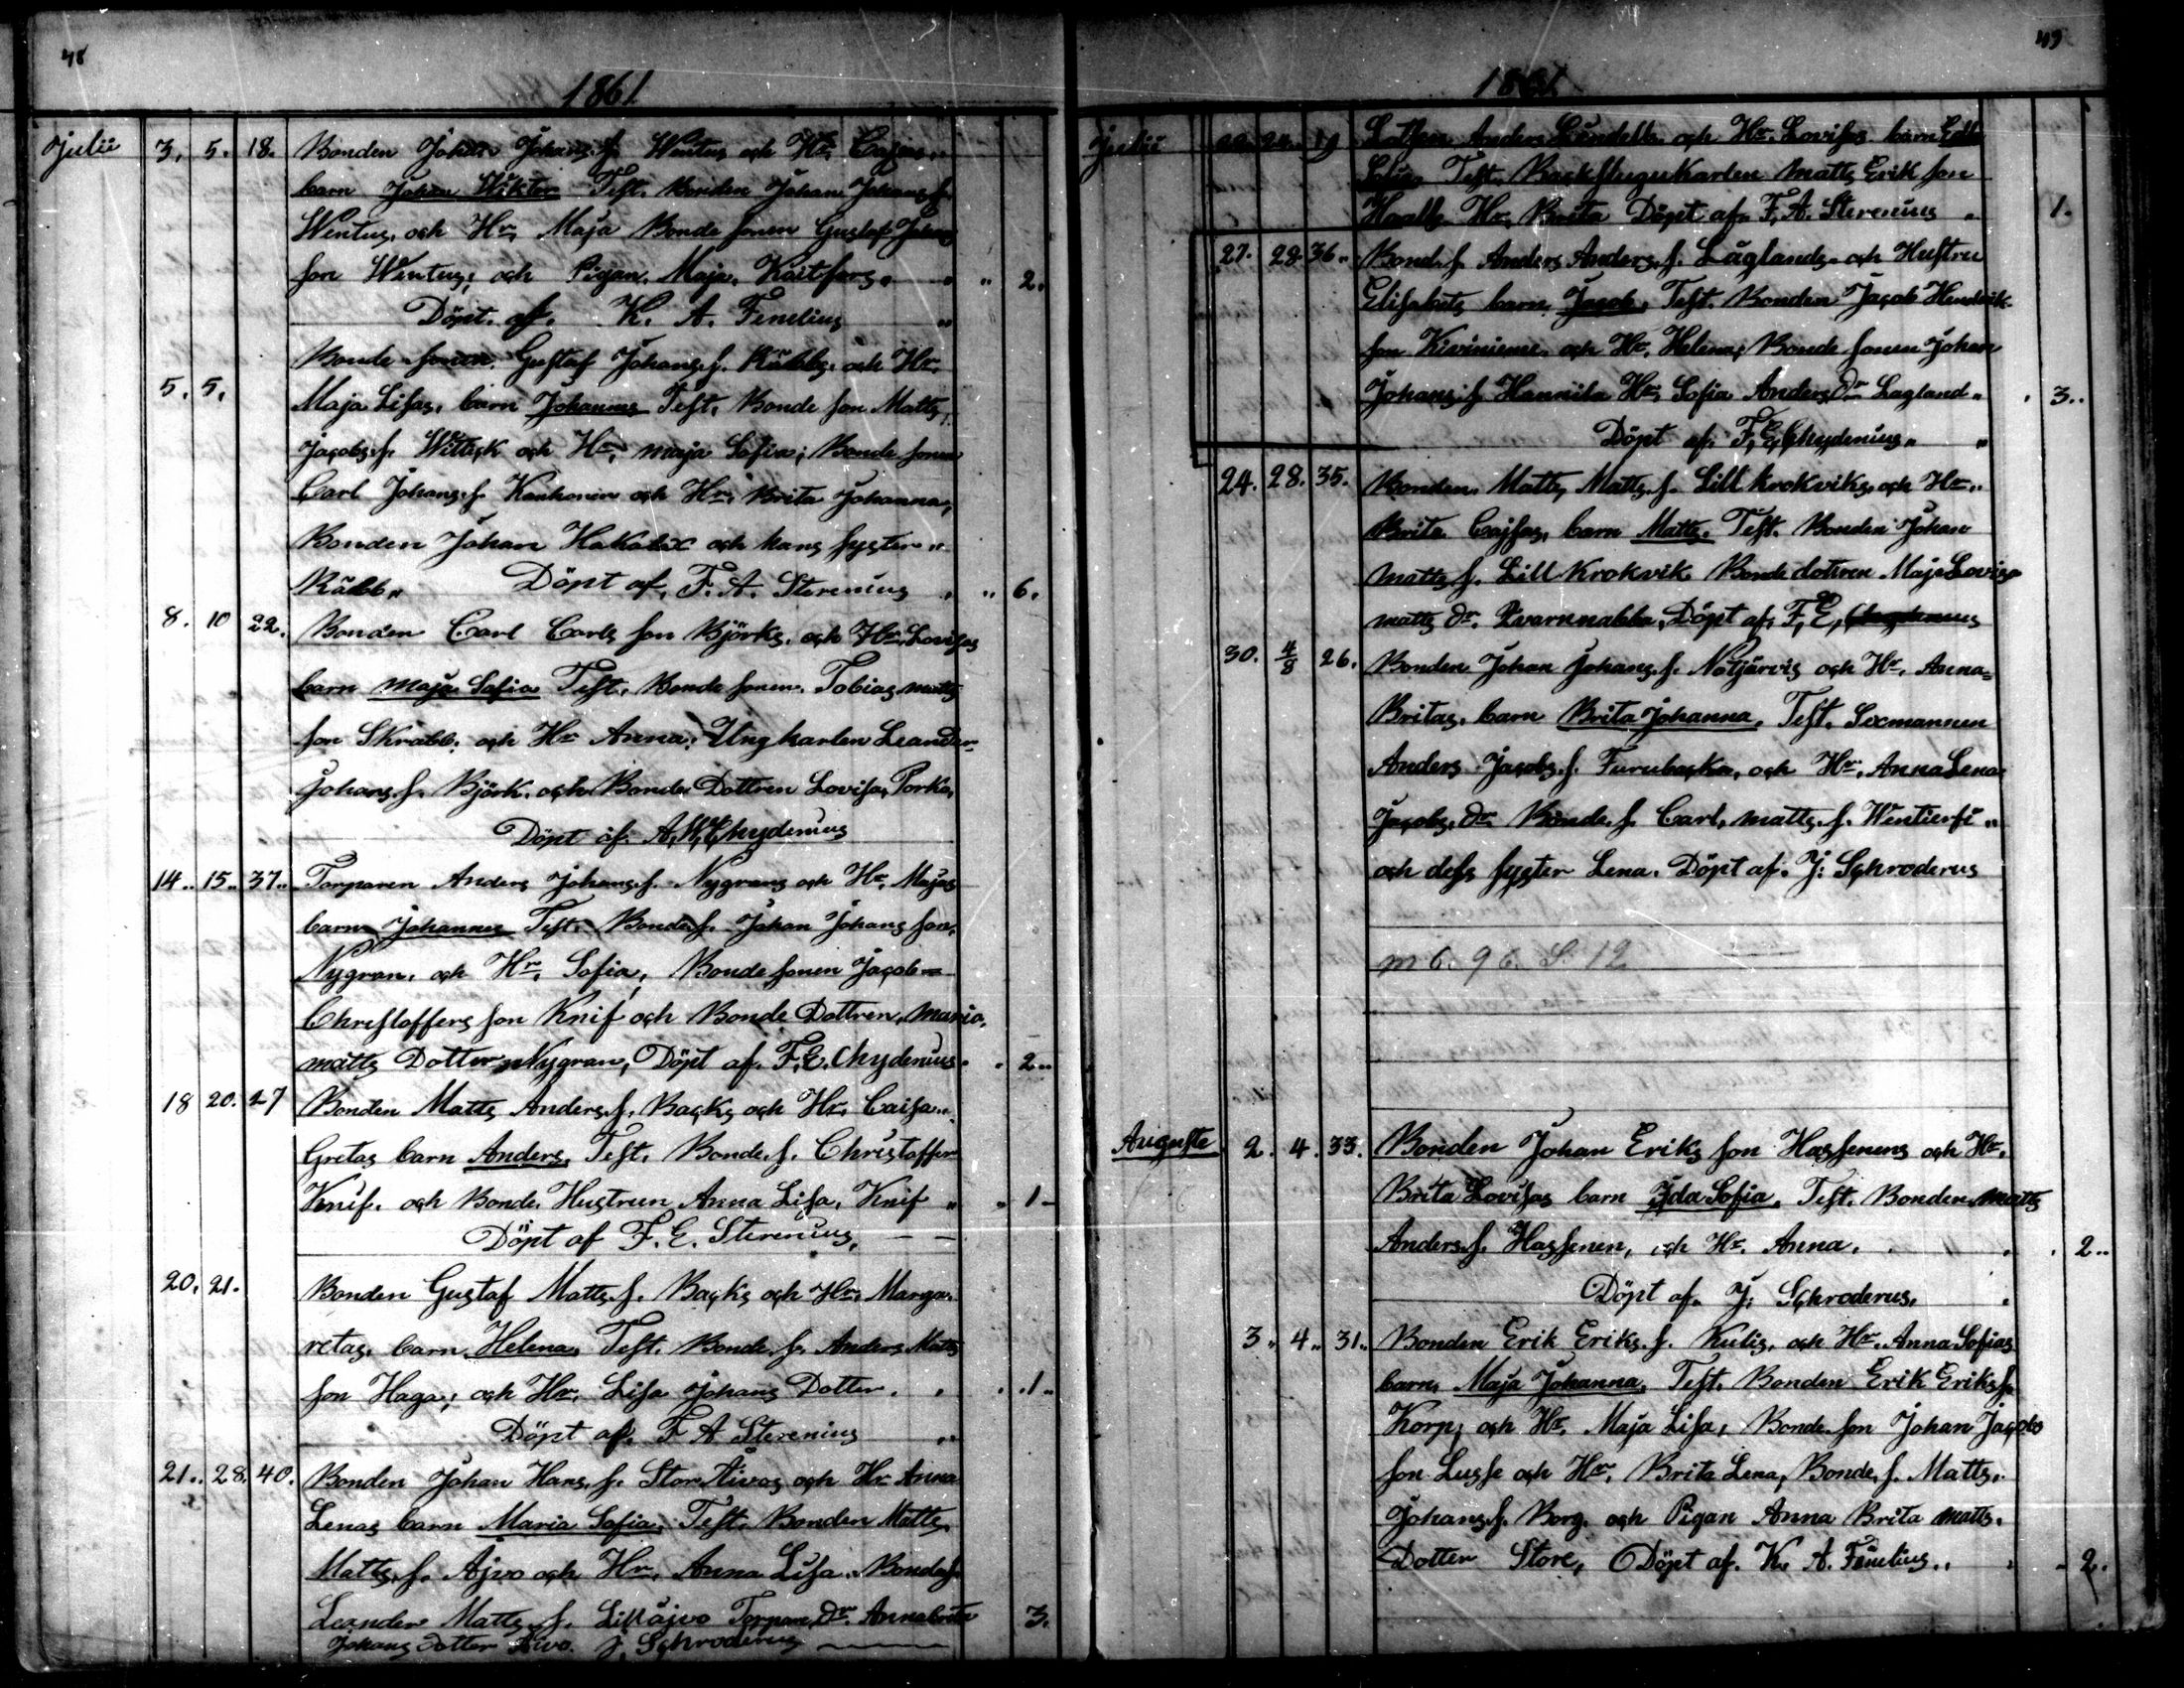 48
1861
Julii 3. 5. 18. Bonden Johan Johans.s. Wintus och Hr. Cajsas
barn Johan Wiktor Test. Bonden Johan Johans.s.
Wintus, och Hr. Maja Bonde sonen Gustaf Johans
son Wintus, och Pigan Maja Kaitfors " " 2.
Döpt af K. A. Finelius "
Bonde sonen Gustaf Johans.s. Räbbs och Hr.
5. 5. Maja Lisas, barn Johannes Test. Bonde son Matts
Jacobs.s. Wittick och Hr. Maja Sofia; Bonde sonen
Carl Johans.s. Kankonen och Hr. Brita Johanna,
Bonden Johan Hakala och hans syster
Räbb Döpt af F. A. Sterenius " " 6.
8. 10 22. Bonden Carl Carls son Björks och Hr. Lovisas
barn Maja Sofia Test. Bonde sonen Tobias Matts
son Skrabb; och Hr Anna; Ungkarlen Leander
Johans.s. Björk och Bonde Dottren Lovisa Porko,
Döpt af A. W. Chydenius
14. 15. 37. Torparen Anders Johans.s. Nygrans och Hr. Majas
barn Johannes Test. Bonde.s. Johan Johans son
Nygran, och Hr. Sofia, Bonde sonen Jacob
Christoffers son Knif och Bonde Dottren Maria
Matts Dotter Nygran, Döpt af F. E. Chydenius . 2.
18 20. 27 Bonden Matts Anders.s. Backs och Hr. Caisa
Gretas barn Anders, Test. Bonde.s. Christoffer
Knif, och Bonde Hustrun Anna Lisa Knif " . 1-
Döpt af F. E. Sterenius, - -
20. 21. Bonden Gustaf Matts.s. Backs och Hr. Marga
retas barn Helena, Test. Bonde.s. Anders Matts
son Haga; och Hr. Lisa Johans Dotter . . 1.
Döpt af F A Sterenius "
21. 28. 40. Bonden Johan Hans.s. Stor Aivos och Hr Anna
Lenas barn Maria Sofia, Test. Bonden Matts
Matts.s. Ajvo och Hr. Anna Lisa. Bonde.s.
Leander Matts.s. Lillåjvo Torpare Dr. Annabrita 3.
Johans dotter Aivo. J. Schroderus
49
1861
Julii 22. 24. 19 Anders Lundells och Hr. Lovisas barn Edla
Sofia Test. Backstugukarlen Matts Erik son
Haall Hr. Brita Döpt af F. A. Sterenius . 1.
27. 28. 36. Bond.s. Anders Anders.s. Låglands och Hustru
Elisabets barn Jacob, Test. Bonden Jacob Hendrik
son Kiviniemi och Hr. Helena, Bonde sonen Johan
Johans.s. Hannila Hr. Sofia Anders Dr Lagland . 3.
Döpt af F. E. Chydenius "
24. 28. 35. Bonden Matts Matts.s. Lill krokviks och Hr.
Brita Cajsas, barn Matts. Test. Bonden Johan
Matts.s. Lill Krokvik Bonde dottren Maja Lovisa
Matts Dr. Kvarnnabba, Döpt af F. E. Chydenius
30. 4/8 26. Bonden Johan Johans.s. Nötjärvis och Hr. Anna
Britas, barn Brita Johanna, Test. Sexmannen
Anders Jacobs.s. Furubacka, och Hr. Anna Lena
Jacobs. Dr. Bonde.s. Carl Matts.s. Wentierfi
och dess syster Lena. Döpt af J. Schroderus
m 6. 9 6. S. 12
Auguste 2. 4. 33. Bonden Johan Eriks son Hassenens och Hr.
Brita Lovisas barn Ida Sofia, Test. Bonden Matts
Anders.s. Hassenen, och Hr. Anna. . . 2.
Döpt af J. Schroderus,
3. 4. 31. Bonden Erik Eriks.s. Kulis, och Hr. Anna Sofias
barn Maja Johanna, Test. Bonden Erik Eriks.s.
Korp, och Hr. Maja Lisa, Bonde son Johan Jacobs
son Lusse och Hr. Brita Lena, Bonde.s. Matts
Johans.s. Borg och Pigan Anna Brita Matts
Dotter Store, Döpt af K. A. Finelius . - 2.